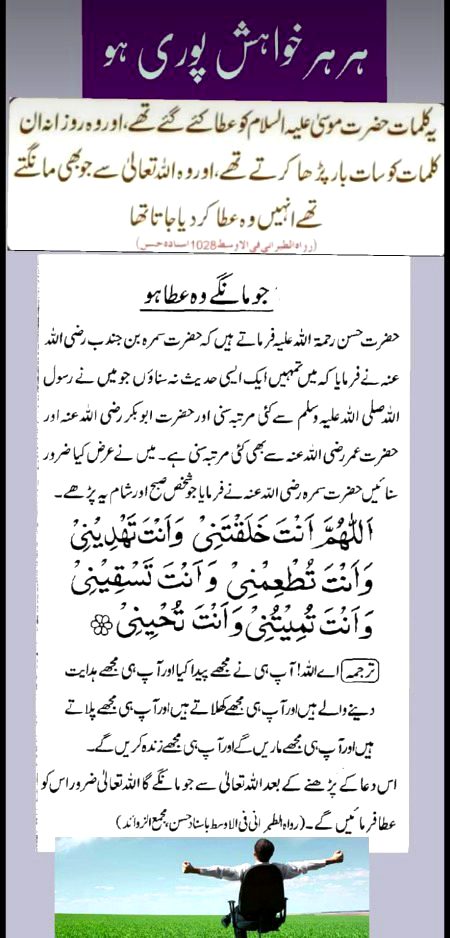 ہر ہر خواہش پوری ہو
یہ کلمات حضرت موسیٰ علیہ السلام کو عطا کئے گئے تھے، اور وہ روزانہ ان
کلمات کو سات بار پڑھا کرتے تھے، اور وہ اللہ تعالیٰ سے جو بھی مانگتے
تھے انہیں وہ عطا کر دیا جاتا تھا
(رواہ الطبرانی فی الاوسط 1028 اسنادہ حسن)
جو مانگے وہ عطا ہو
حضرت حسن رحمۃ اللہ علیہ فرماتے ہیں کہ حضرت سمرہ بن جندب رضی اللہ
عنہ نے فرمایا کہ میں تمہیں ایک ایسی حدیث نہ سناؤں جو میں نے رسول
اللہ صلی اللہ علیہ وسلم سے کئی مرتبہ سنی اور حضرت ابوبکر رضی اللہ عنہ اور
حضرت عمر رضی اللہ عنہ سے بھی کئی مرتبہ سنی ہے۔ میں نے عرض کیا ضرور
سنائیں حضرت سمرہ رضی اللہ عنہ نے فرمایا جو شخص صبح اور شام یہ پڑھے۔
اَللّٰهُمَّ اَنْتَ خَلَقْتَنِیْ وَاَنْتَ تَهْدِیْنِیْ
وَاَنْتَ تُطْعِمُنِیْ وَاَنْتَ تَسْقِیْنِیْ
وَاَنْتَ تُمِیْتُنِیْ وَاَنْتَ تُحْیِنِیْ
ترجمہ اے اللہ! آپ ہی نے مجھے پیدا کیا اور آپ ہی مجھے ہدایت
دینے والے ہیں اور آپ ہی مجھے کھلاتے ہیں اور آپ ہی مجھے پلاتے
ہیں اور آپ ہی مجھے ماریں گے اور آپ ہی مجھے زندہ کریں گے۔
اس دعا کے پڑھنے کے بعد اللہ تعالیٰ سے جو مانگے گا اللہ تعالیٰ ضرور اس کو
عطا فرمائیں گے۔ (رواہ الطبرانی فی الاوسط باسناد حسن، مجمع الزوائد)